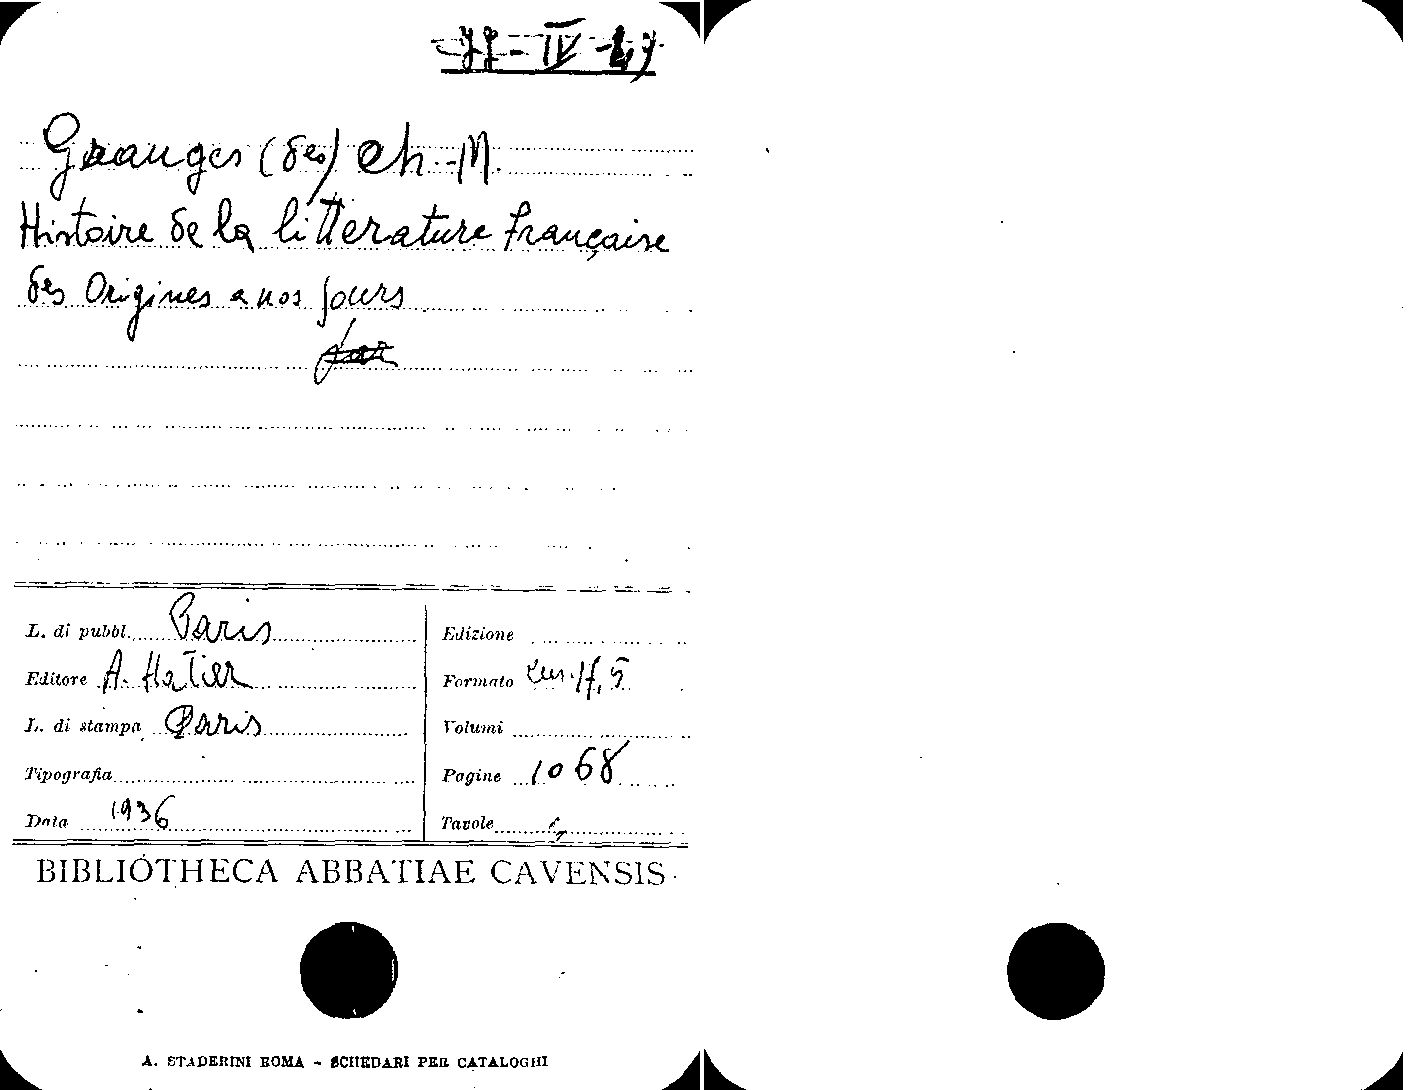 Granges (des) Ch.-M.
Histoire de la litterature française
des Origines a nos jours
L. di pubbl. Paris
Editore A. Hatier
L. di stampa Paris
Tipografia
Data 1936
Edizione
Formato 17,5
Volumi
Pagine 1068
Tavole
BIBLIOTHECA ABBATIAE CAVENSIS
A. STADERINI ROMA - SCHEDARI PER CATALOGHI